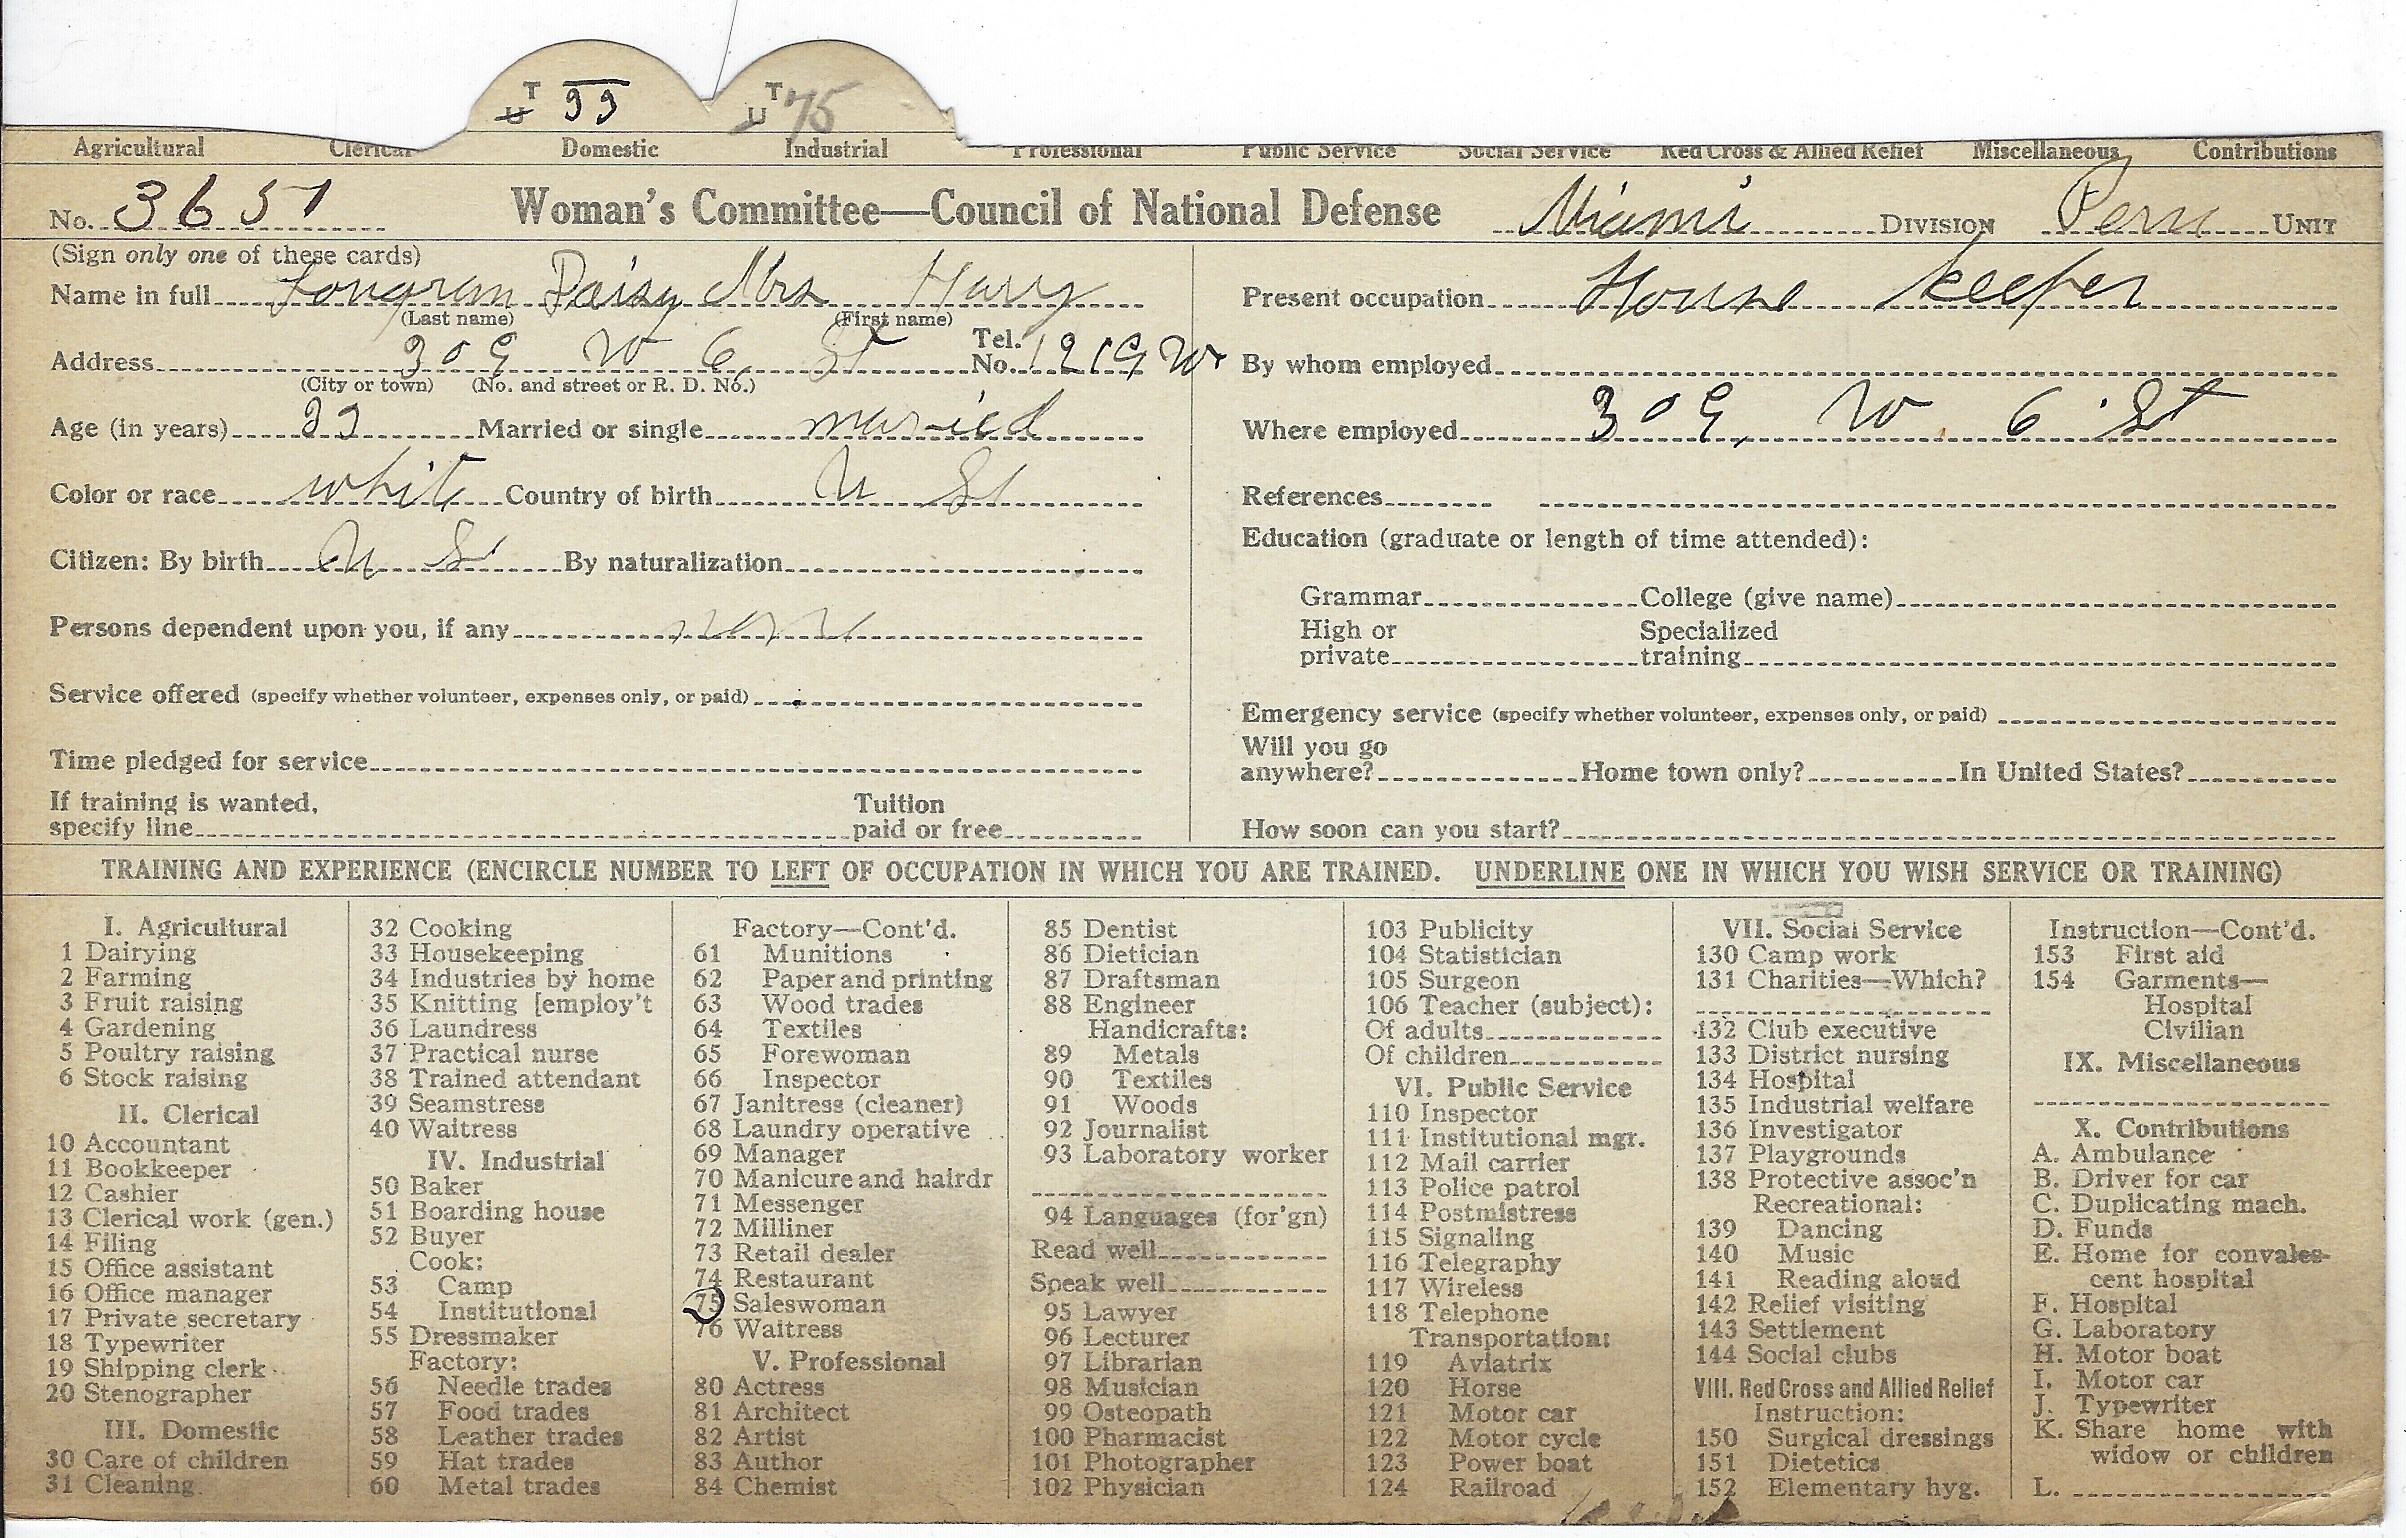 T U 33 T U 75
Agricultural Clerical Domestic Industrial Professional Public Service Social Service Red Cross & Allied Relief Miscellaneous Contributions
No. 3651 Woman's Committee—Council of National Defense Miami DIVISION Peru UNIT
(Sign only one of these cards)
Name in full Longran Daisy Mrs Harry
(Last name) (First name)
Address 309 W 6 St Tel. No. 1219 W
(City or town) (No. and street or R. D. No.)
Age (in years) 33 Married or single married
Color or race white Country of birth U S
Citizen: By birth U S By naturalization
Persons dependent upon you, if any
Service offered (specify whether volunteer, expenses only, or paid)
Time pledged for service
If training is wanted, specify line Tuition paid or free
Present occupation House keeper
By whom employed
Where employed 309 W. 6 St
References
Education (graduate or length of time attended):
Grammar College (give name)
High or private Specialized training
Emergency service (specify whether volunteer, expenses only, or paid)
Will you go anywhere? Home town only? In United States?
How soon can you start?
TRAINING AND EXPERIENCE (ENCIRCLE NUMBER TO LEFT OF OCCUPATION IN WHICH YOU ARE TRAINED. UNDERLINE ONE IN WHICH YOU WISH SERVICE OR TRAINING)
I. Agricultural
1 Dairying
2 Farming
3 Fruit raising
4 Gardening
5 Poultry raising
6 Stock raising
II. Clerical
10 Accountant
11 Bookkeeper
12 Cashier
13 Clerical work (gen.)
14 Filing
15 Office assistant
16 Office manager
17 Private secretary
18 Typewriter
19 Shipping clerk
20 Stenographer
III. Domestic
30 Care of children
31 Cleaning
32 Cooking
33 Housekeeping
34 Industries by home
35 Knitting [employ't
36 Laundress
37 Practical nurse
38 Trained attendant
39 Seamstress
40 Waitress
IV. Industrial
50 Baker
51 Boarding house
52 Buyer
Cook:
53 Camp
54 Institutional
55 Dressmaker
Factory:
56 Needle trades
57 Food trades
58 Leather trades
59 Hat trades
60 Metal trades
Factory—Cont'd.
61 Munitions
62 Paper and printing
63 Wood trades
64 Textiles
65 Forewoman
66 Inspector
67 Janitress (cleaner)
68 Laundry operative
69 Manager
70 Manicure and hairdr
71 Messenger
72 Milliner
73 Retail dealer
74 Restaurant
75 Saleswoman
76 Waitress
V. Professional
80 Actress
81 Architect
82 Artist
83 Author
84 Chemist
85 Dentist
86 Dietician
87 Draftsman
88 Engineer
Handicrafts:
89 Metals
90 Textiles
91 Woods
92 Journalist
93 Laboratory worker
94 Languages (for'gn)
Read well
Speak well
95 Lawyer
96 Lecturer
97 Librarian
98 Musician
99 Osteopath
100 Pharmacist
101 Photographer
102 Physician
103 Publicity
104 Statistician
105 Surgeon
106 Teacher (subject):
Of adults
Of children
VI. Public Service
110 Inspector
111 Institutional mgr.
112 Mail carrier
113 Police patrol
114 Postmistress
115 Signaling
116 Telegraphy
117 Wireless
118 Telephone
Transportation:
119 Aviatrix
120 Horse
121 Motor car
122 Motor cycle
123 Power boat
124 Railroad
VII. Social Service
130 Camp work
131 Charities—Which?
132 Club executive
133 District nursing
134 Hospital
135 Industrial welfare
136 Investigator
137 Playgrounds
138 Protective assoc'n
Recreational:
139 Dancing
140 Music
141 Reading aloud
142 Relief visiting
143 Settlement
144 Social clubs
VIII. Red Cross and Allied Relief
Instruction:
150 Surgical dressings
151 Dietetics
152 Elementary hyg.
Instruction—Cont'd.
153 First aid
154 Garments—
Hospital
Civilian
IX. Miscellaneous
X. Contributions
A. Ambulance
B. Driver for car
C. Duplicating mach.
D. Funds
E. Home for convales-
cent hospital
F. Hospital
G. Laboratory
H. Motor boat
I. Motor car
J. Typewriter
K. Share home with
widow or children
L.